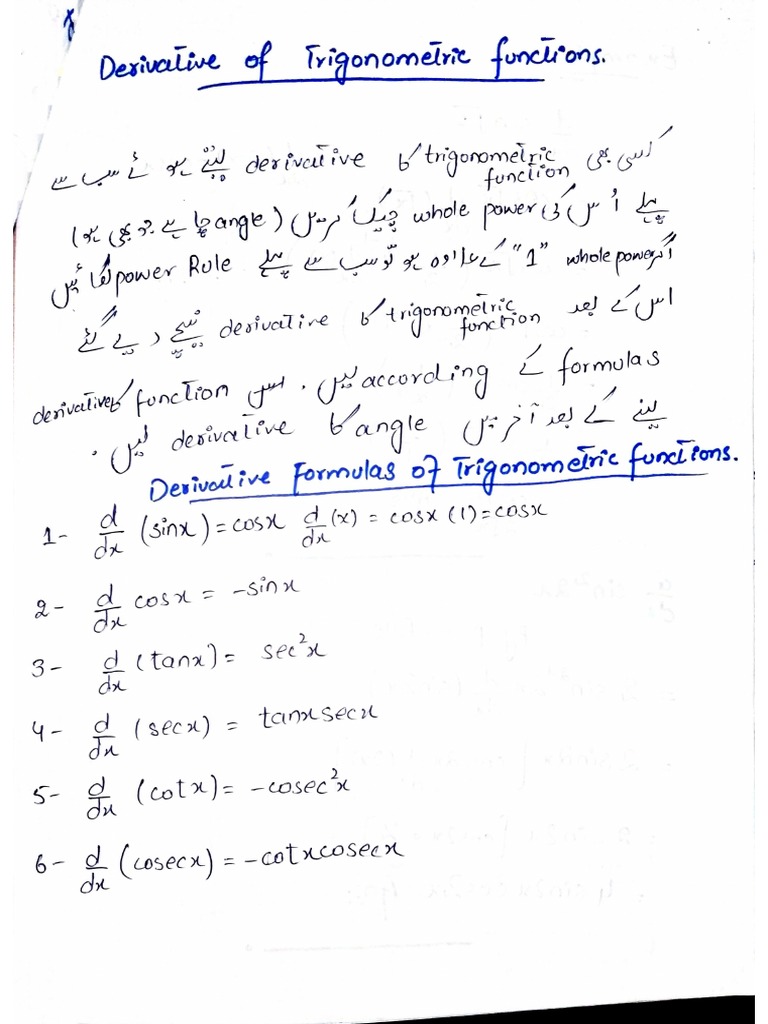 Derivative of Trigonometric functions.
کسی بھی trigonometric function کا derivative لیتے ہوئے سب سے
پہلے اُس کی whole power چیک کریں (angle چاہے جو بھی ہو)
اگر whole power "1" کے علاوہ ہو تو سب سے پہلے power Rule لگائیں
اس کے بعد trigonometric function کا derivative نیچے دیے گئے
formulas کے according لیں. اس function کا derivative
لینے کے بعد آخر میں angle کا derivative لیں.
Derivative Formulas of Trigonometric functions.
1- d/dx (sinx) = cosx d/dx (x) = cosx (1) = cosx
2- d/dx cosx = -sinx
3- d/dx (tanx) = sec²x
4- d/dx (secx) = tanxsecx
5- d/dx (cotx) = -cosec²x
6- d/dx (cosecx) = -cotxcosecx